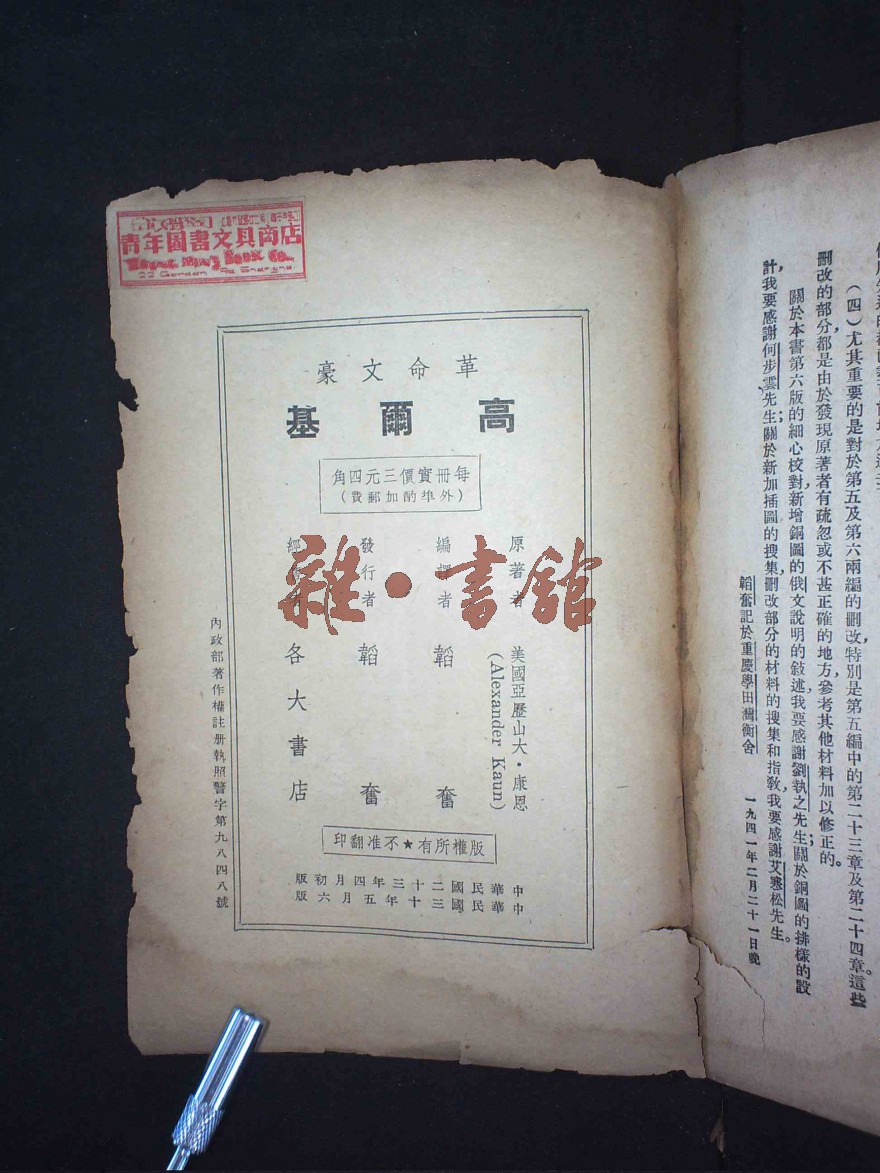 刪改的部分都是由於發現原著者有疏忽或不甚正確的地方，參考其他材料加以修正的。
（四）尤其重要的是對於第五及第六兩編的刪改，特別是第五編中的第二十三章及第二十四章。這些
關於本書第六版的細心校對，新增銅圖的俄文說明的敍述，我要感謝劉執之先生；關於銅圖的排樣的設
計，我要感謝何步雲先生；關於新加插圖的搜集，刪改部分的材料的搜集和指敎，我要感謝艾寒松先生。
韜奮記於重慶學田灣衡舍
一九四一年二月二十一日晚
青年圖書文具商店
革命文豪
高爾基
每冊實價三元四角
（外埠酌加郵費）
原著者 美國亞歷山大・康恩
(Alexander Kaun)
編譯者 韜奮
發行者 韜奮
經售者 各大書店
版權所有★不准翻印
中華民國二十三年四月初版
中華民國三十年五月六版
內政部著作權註册執照警字第九八四八號
雜・書館